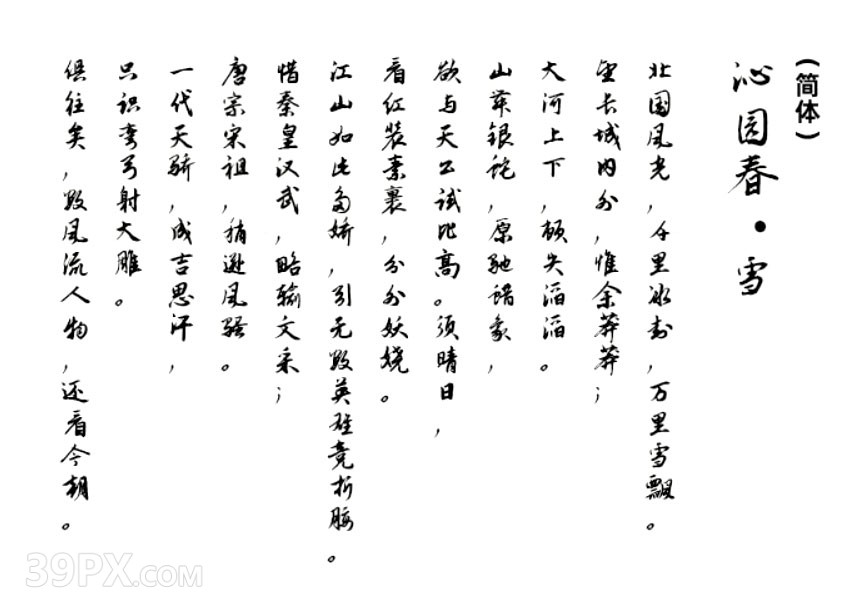 (简体)
沁园春·雪
北国风光,千里冰封,万里雪飘。
望长城内外,惟余莽莽;
大河上下,顿失滔滔。
山舞银蛇,原驰蜡象,
欲与天公试比高。须晴日,
看红装素裹,分外妖娆。
江山如此多娇,引无数英雄竞折腰。
惜秦皇汉武,略输文采;
唐宗宋祖,稍逊风骚。
一代天骄,成吉思汗,
只识弯弓射大雕。
俱往矣,数风流人物,还看今朝。
39PX.COM